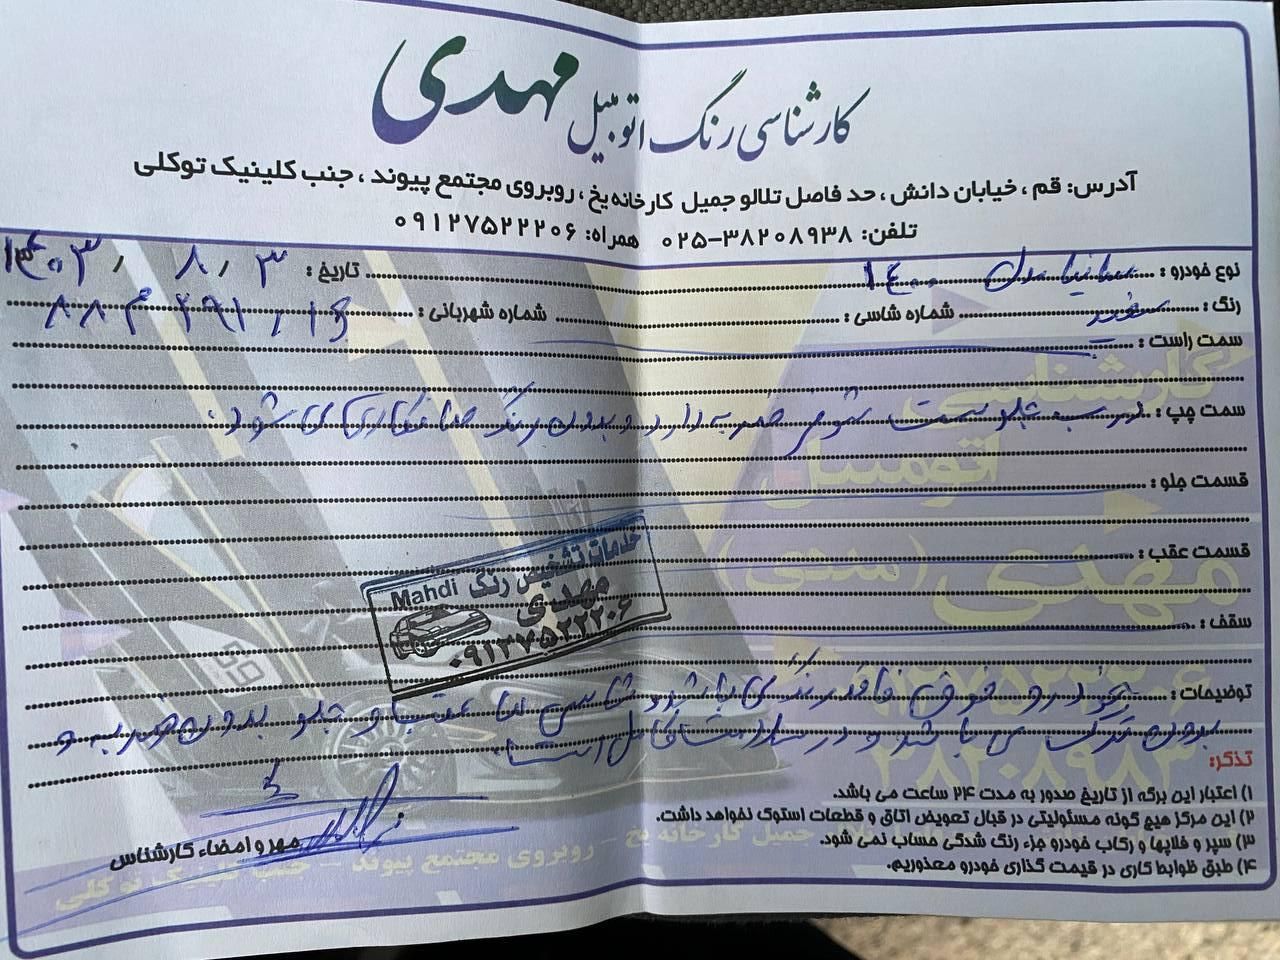 کارشناسی رنگ اتومبیل مهدی
آدرس: قم ، خیابان دانش ، حد فاصل تلالو جمیل کارخانه یخ ، روبروی مجتمع پیوند ، جنب کلینیک توکلی
تلفن: ۳۸۲۰۸۹۳۸-۰۲۵ همراه: ۰۹۱۲۷۵۲۲۲۰۶
نوع خودرو : سایپا مدل ۱۴۰۰ تاریخ : ۱۴۰۳/۸/۳
رنگ : سفید شماره شاسی : شماره شهربانی : ۸۸م۲۹۱/۱۶
سمت راست : –
سمت چپ : درب جلو سمت ضربه دارد و بدون رنگ صافکاری می شود.
قسمت جلو :
قسمت عقب :
سقف :
خدمات تشخیص رنگ Mahdi
مهدی
۰۹۱۲۷۵۲۲۲۰۶
توضیحات : خودرو فوق فاقد رنگ می باشد و شاسی های عقب و جلو بدون ضربه و
بدون ترک می باشد و در سلامت کامل است.
تذکر:
۱) اعتبار این برگه از تاریخ صدور به مدت ۲۴ ساعت می باشد.
۲) این مرکز هیچ گونه مسئولیتی در قبال تعویض اتاق و قطعات استوک نخواهد داشت.
۳) سپر و فلاپها و رکاب خودرو جزء رنگ شدگی حساب نمی شود.
۴) طبق ظوابط کاری در قیمت گذاری خودرو معذوریم.
مهر و امضاء کارشناس